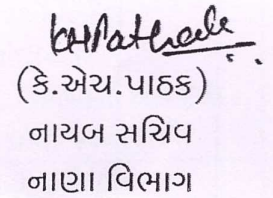 KHPathak
(કે.એચ.પાઠક)
નાયબ સચિવ
નાણા વિભાગ